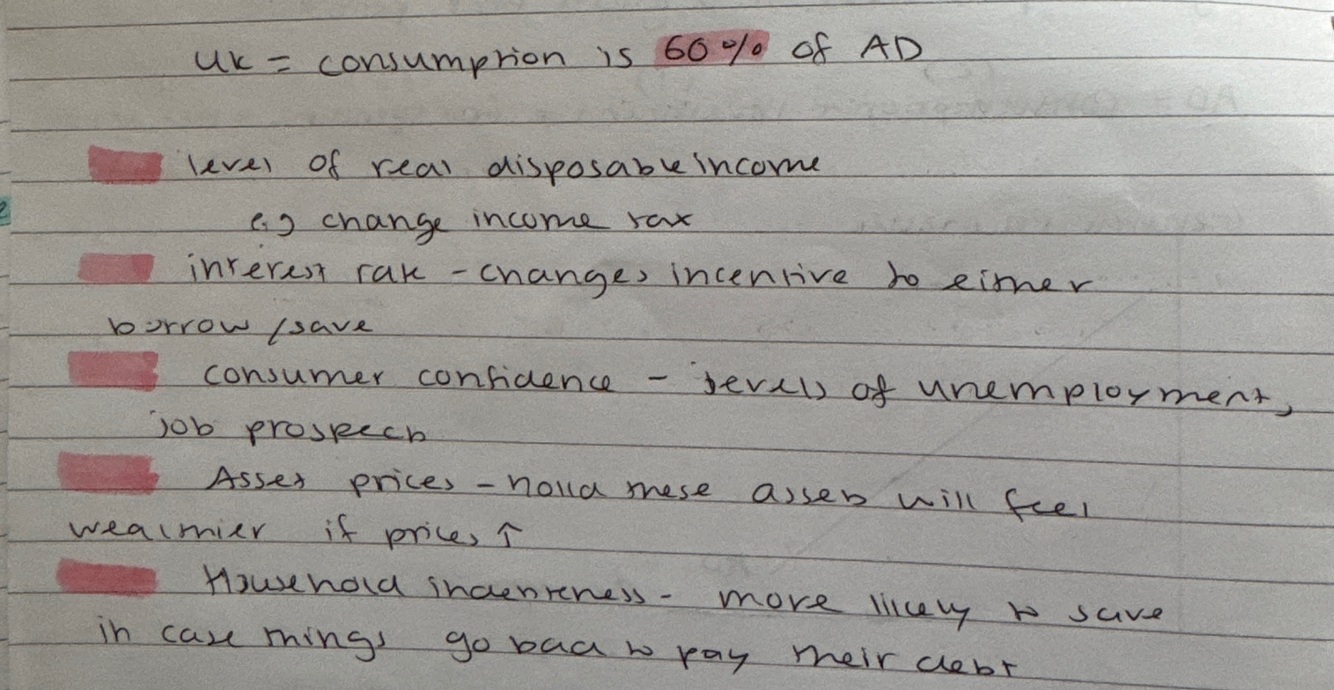 UK = consumption is 60% of AD
level of real disposable income
e.g change income tax
interest rate - changes incentive to either
borrow/save
consumer confidence - levels of unemployment,
job prospects
Asset prices - hold these assets will feel
wealthier if prices ↑
Household indebtness - more likely to save
in case things go bad to pay their debt